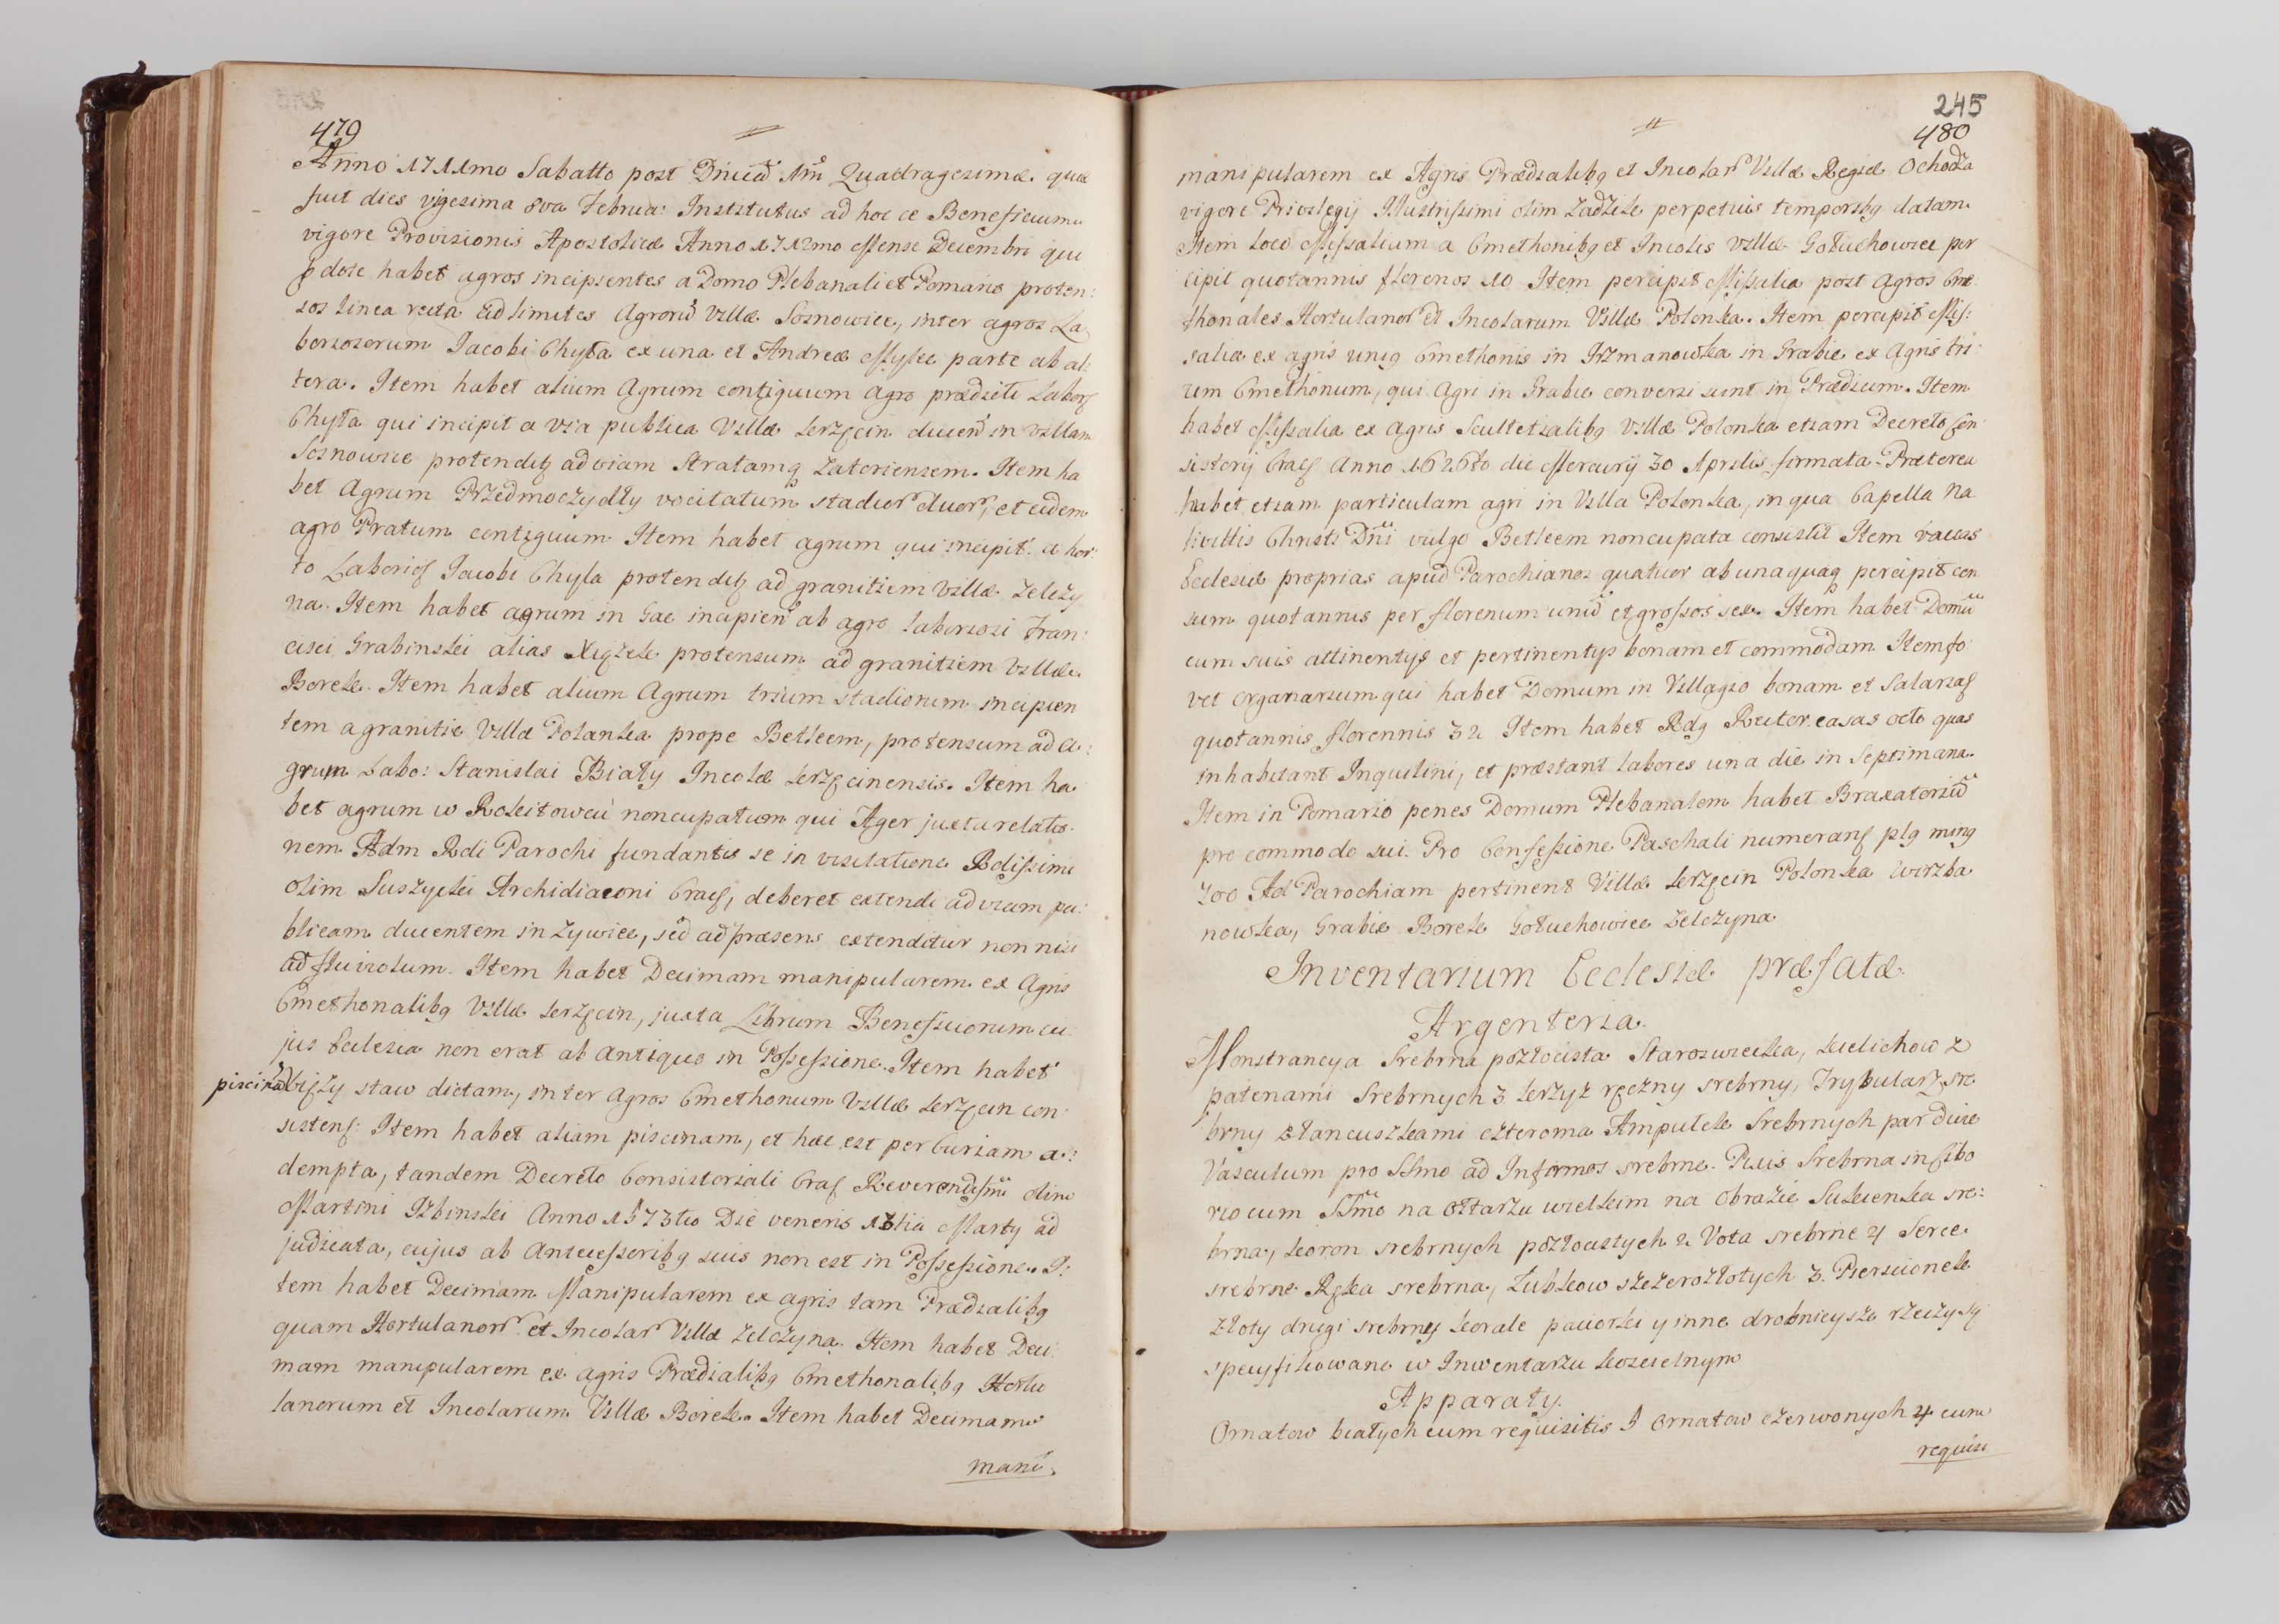 479
Anno 1711mo Sabatto post Dnicã 1mã Quadragesimæ. quæ
fuit dies vigesima 8va Februa: Institutus ad hoc ce Beneficium
vigore Provisionis Apostolicæ Anno 1712mo Mense Decembri qui
p dote habet agros incipientes a Domo Plebanali et Pomario proten:
sos linea recta ad limites Agrorũ Villæ Sosnowice, inter agros La
boriosorum Jacobi Chyła ex una et Andreæ Myłek parte ab al:
tera. Item habet alium Agrum contiguum Agro prædicti Labor
Chyła qui incipit a via publica Villæ Krzęcin ducen in villam
Sosnowice protendẽ ad viam Stratamq Zatoriensem. Item ha
bet Agrum Przedmoczydły vocitatum stadior duor, et eidem
agro Pratum contiguum Item habet agrum qui incipit a hor:
to Laborios Jacobi Chyla protendẽ ad granitiem Villæ Zelczy
na. Item habet agrum in Gac incipien ab agro laboriosi Fran:
cisci Grabinski alias Xiązek protensum ad granitiem Villæ
Borek. Item habet alium Agrum trium stadiorum incipien
tem a granitie Villæ Polanka prope Betleem, protensum ad a:
grum Labo: Stanislai Biały Incolæ Krzęcinensis. Item ha
bet agrum w Rokitowcu noncupatum qui Ager juxta relatio
nem Adm Rdi Parochi fundantis se in visitatione Rdissimi
olim Suszycki Archidiaconi Crac, deberet extendi ad viam pu:
blicam ducentem in Zywiec, sed ad præsens extenditur non nisi
ad fluviolum. Item habet Decimam manipularem ex Agris
Cmethonalibq Villæ Krzęcin, juxta Librum Beneficiorum cu
jus Ecclesia non erat ab antiquo in Possessione. Item habet
piscinã Xięży staw dictam, inter Agros Cmethonum Villæ Krzęcin con:
sistens: Item habet aliam piscinam, et hæc est per Curiam a:
dempta, tandem Decreto Consistoriali Crac Reverendissmi olim
Martini Izbinski Anno 1573tio Die veneris 13tia Marty ad
judicata, cujus ab Antecessoribq suis non est in Possessione. I:
tem habet Decimam Manipularem ex agris tam Prædialibq
quam Hortulanor et Incolar Villæ Zelczyna. Item habet Deci
mam manipularem ex agris Prædialibq Cmethonalibq Hortu
lanorum et Incolarum Villæ Borek. Item habet Decimam
mani
245
480
manipularem ex Agris Prædialibq et Incolar Villæ Regiæ Ochodza
vigore Privilegij Illustrissimi olim Zadzik perpetuis temporibq datam
Item loco Missalium a Cmethonibq et Incolis Villæ Gołuchowice per
cipit quotannis florenos 10 Item percipit Missalia post Agros Cme
thonales Hortulanor et Incolarum Villæ Polonka. Item percipit Mis:
salia ex agris uniq Cmethonis in Irzmanowka in Grabie ex Agris tri
um Cmethonum, qui Agri in Grabie conversi sunt in Prædium. Item
habet Missalia ex Agris Scultetialibq Villæ Polonka etiam Decreto Con
sistorij Crac Anno 1626to die Mercurij 30 Aprilis firmata. Præterea
habet etiam particulam agri in Villa Polonka, in qua Capella Na
tivittis Christi Dni vulgo Betleem noncupata consistit Item vaccas
Ecclesiæ proprias apud Parochianos quatuor ab unaquaq percipit cen
sum quotannis per florenum unũ et grossos sex. Item habet Domũ
cum suis attinentijs et pertinentijs bonam et commodam Item fo
vet Organarium qui habet Domum in Villagio bonam et Salarias
quotannis florennis 32 Item habet Rdq Rector casas octo quas
inhabitant Inquilini, et præstant labores una die in Septimana
Item in Pomario penes Domum Plebanalem habet Braxatoriũ
pro commodo sui. Pro Confessione Paschali numerans plq minq
700 Ad Parochiam pertinent Villæ Krzęcin Polonka Wirzba
nowka, Grabie Borek Gołuchowice Zelczyna
Inventarium Ecclesiæ præfatæ
Argenteria
Monstrancya Srebrna pozłocista Staroswiecka, kielichow z
patenami Srebrnych 3 krzyz ręczny srebrny, Trybularz sre
brny złancuszkami czteroma Ampułek Srebrnych par dwie
Vasculum pro SSmo ad Infirmos srebrne. Puis Srebrna in Cibo
rio cum SSmo na Ołtarzu wielkim na Obrazie Sukienka sre:
brna, koron srebrnych pozłocistych 2 Vota srebrne 4 Serce
srebrne Ręka srebrna, Zubkow szczerozłotych 3. Pierscionek
złoty drugi srebrny korale paciorki y inne drobnieysze rzeczy są
specyfikowane w Inwentarzu koscielnym
Apparaty.
Ornatow białych cum requisitis 5 Ornatow czerwonych 4 cum
requisi